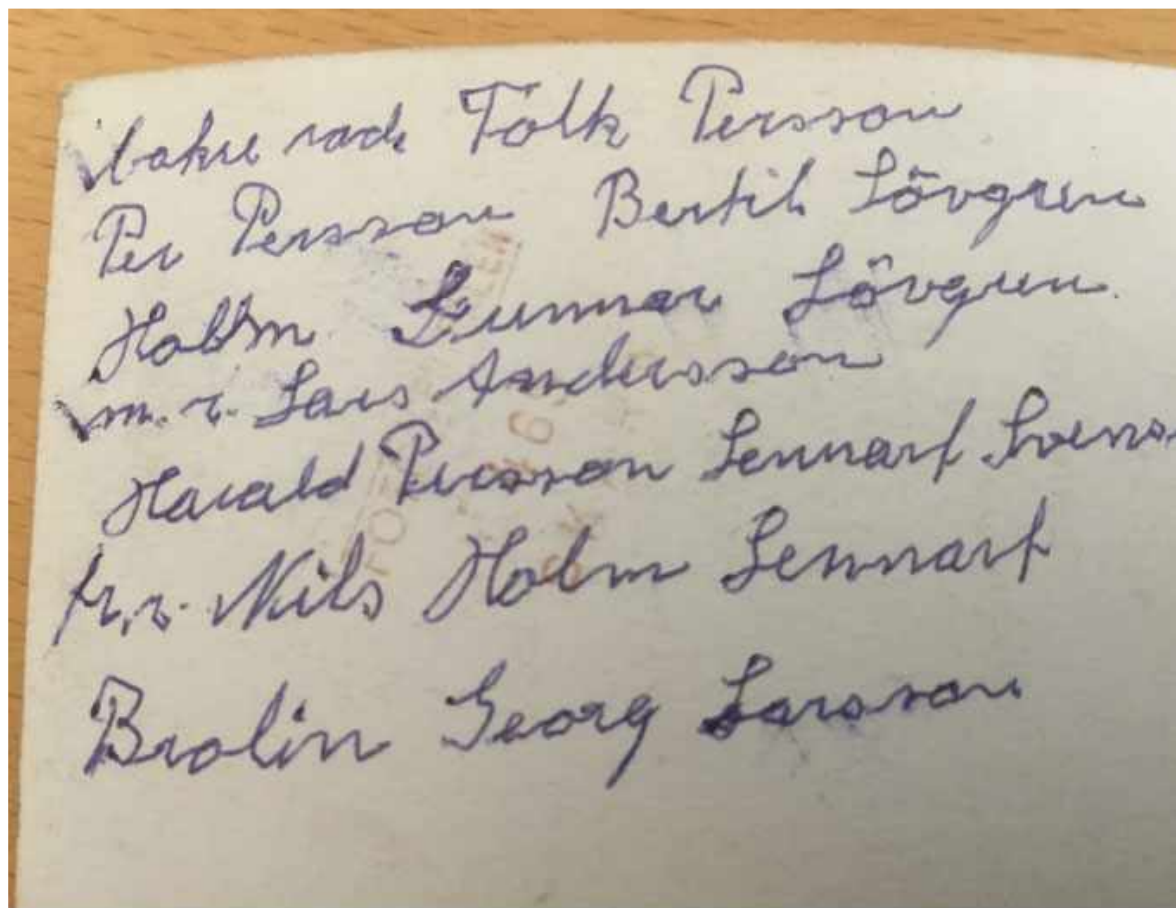 bakre rad. Folk Persson
Per Persson Bertil Lövgren
Holm Gunnar Lövgren.
m.r. Lars Andersson
Harald Persson Lennart Svens
fr.r. Nils Holm Lennart
Brolin Georg Larsson